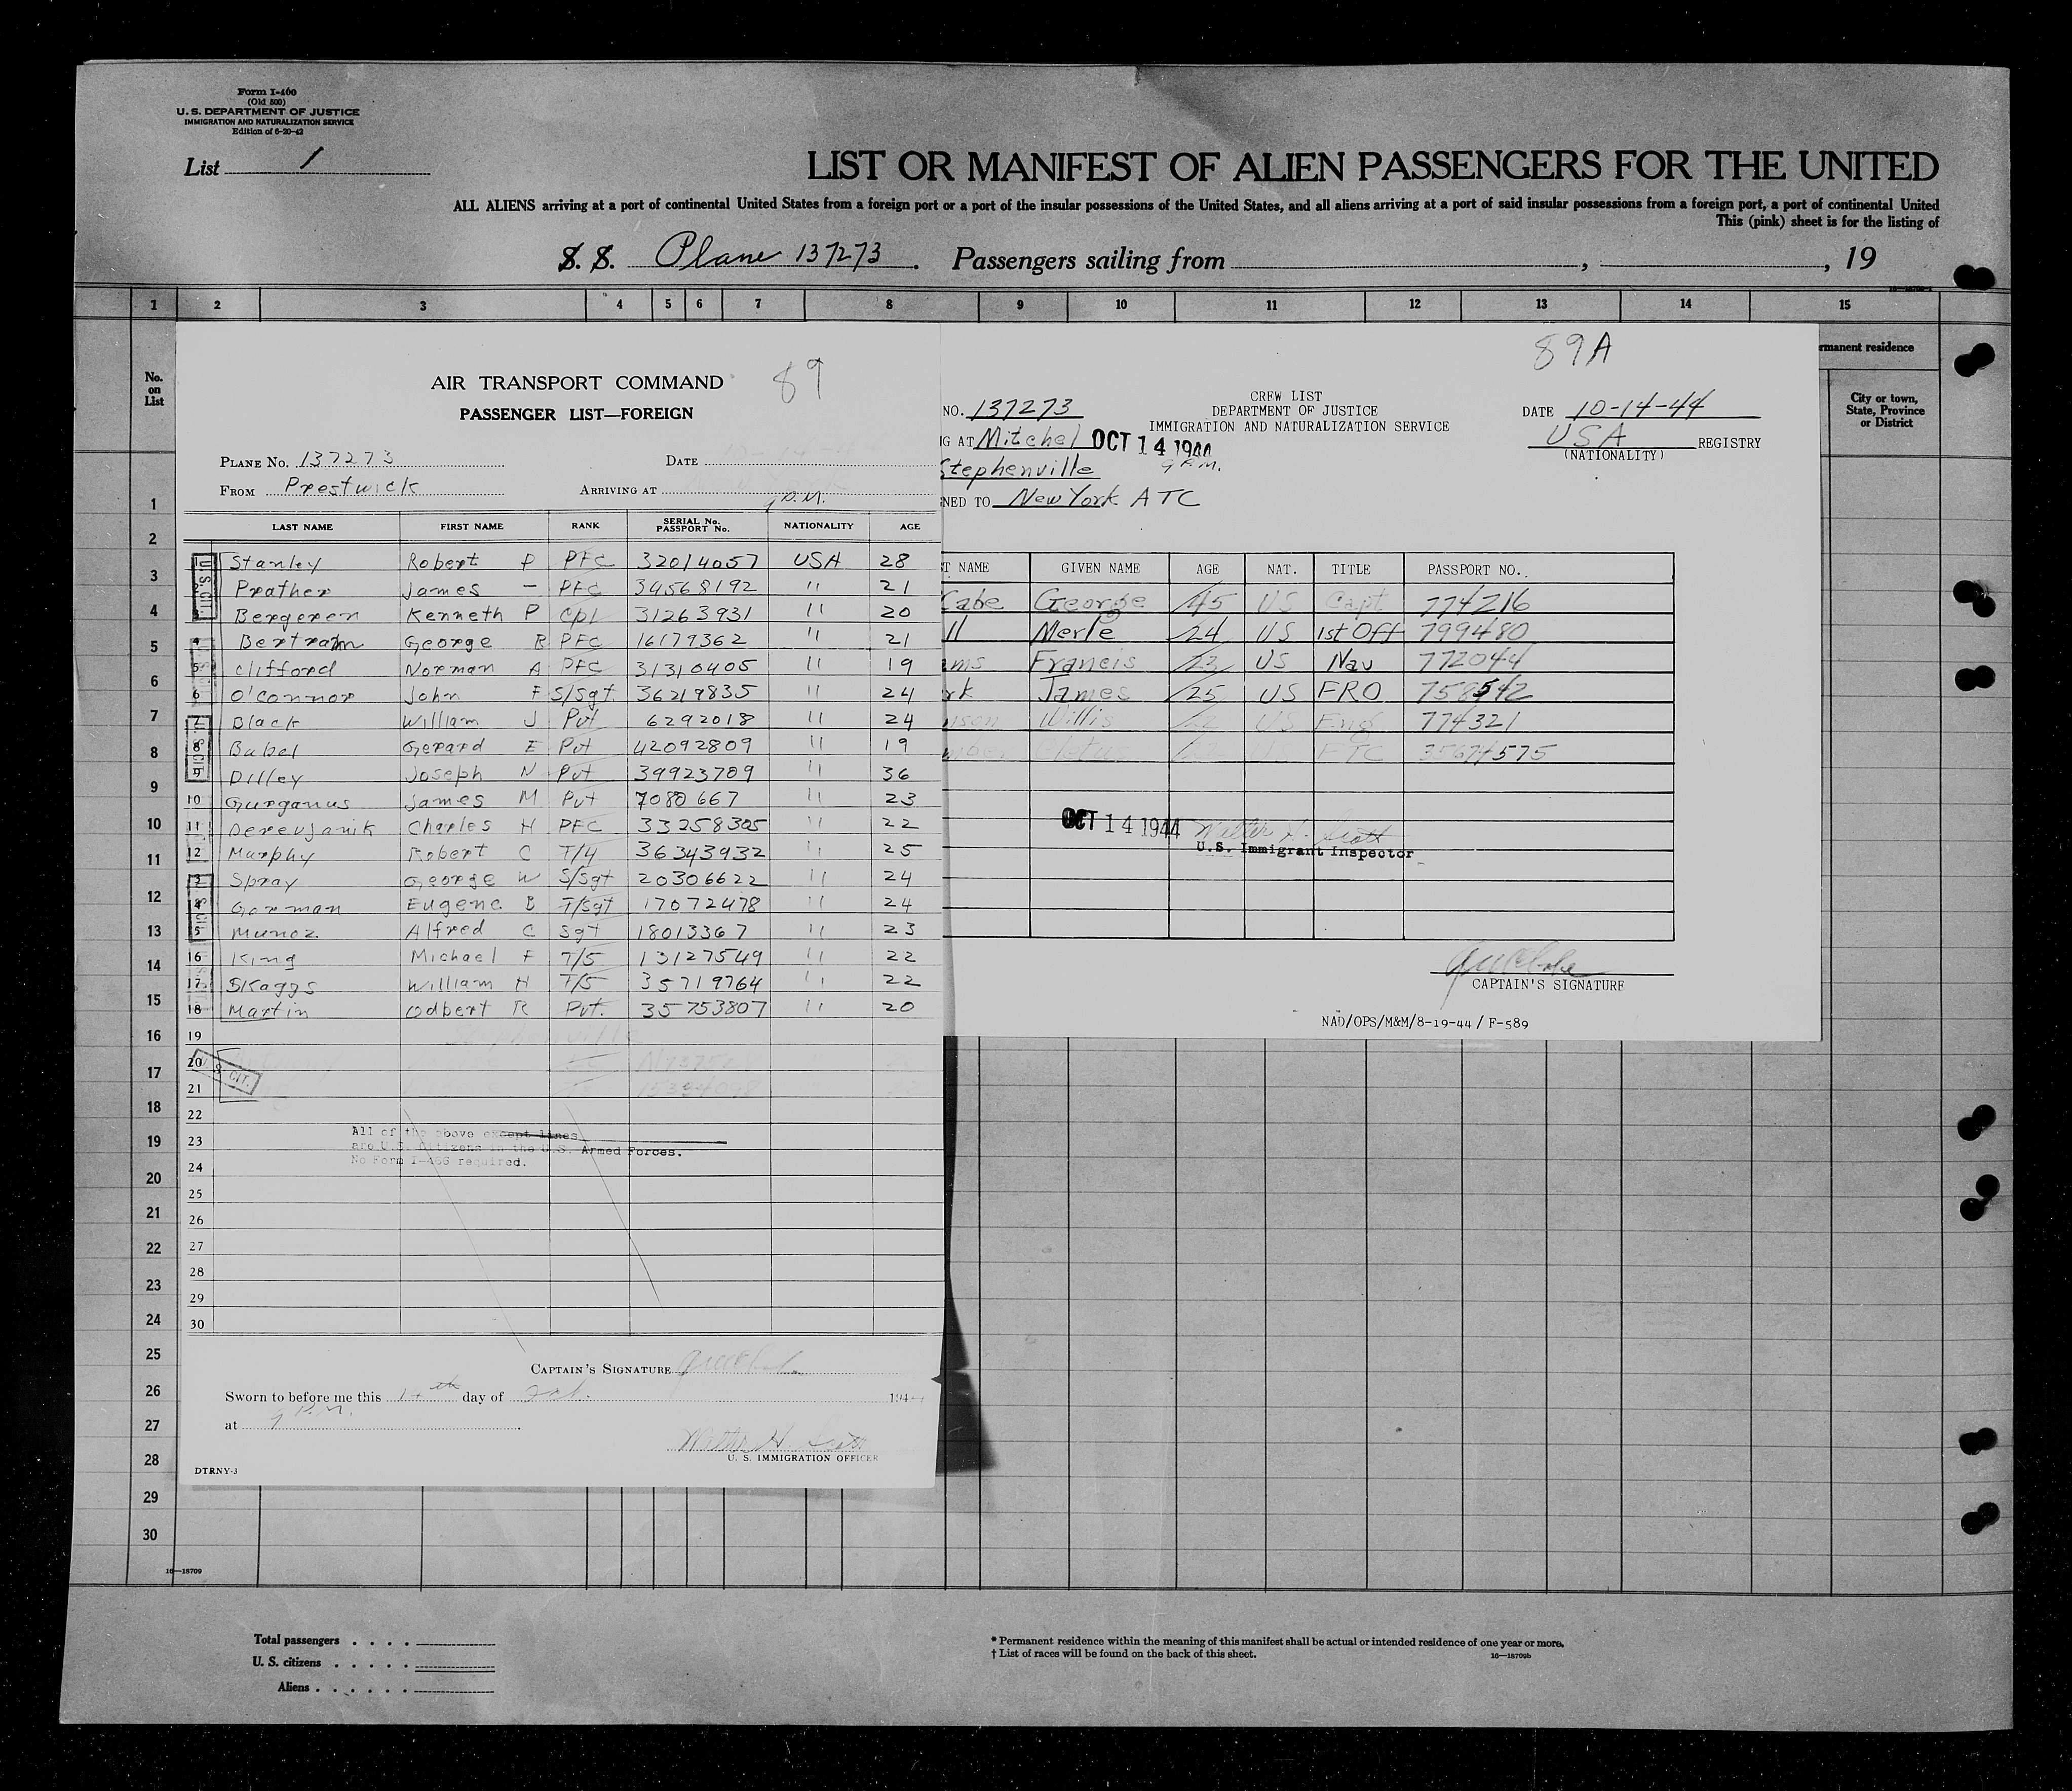 Form I-466
(Old 500)
U. S. DEPARTMENT OF JUSTICE
IMMIGRATION AND NATURALIZATION SERVICE
Edition of 6-20-42
List 1
LIST OR MANIFEST OF ALIEN PASSENGERS FOR THE UNITED
ALL ALIENS arriving at a port of continental United States from a foreign port or a port of the insular possessions of the United States, and all aliens arriving at a port of said insular possessions from a foreign port, a port of continental United
This (pink) sheet is for the listing of
S. S. Plane 137273. Passengers sailing from , , 19
1 2 3 4 5 6 7 8 9 10 11 12 13 14 15
No. on List
rmanent residence
City or town, State, Province or District
89
AIR TRANSPORT COMMAND
PASSENGER LIST—FOREIGN
PLANE No. 137273 DATE 10-14-44
FROM Prestwick ARRIVING AT
9 P.M.
LAST NAME FIRST NAME RANK SERIAL No. PASSPORT No. NATIONALITY AGE
Stanley Robert P PFC 32014057 USA 28
Prather James — PFC 34568192 " 21
Bergeren Kenneth P Cpl 31263931 " 20
4 Bertram George R PFC 16179362 " 21
5 Clifford Norman A PFC 31310405 " 19
6 O'Connor John F S/Sgt 36219835 " 24
7 Black William J Pvt 6292018 " 24
8 Babel Gerard E Pvt 42092809 " 19
9 Dilley Joseph N Pvt 39923709 " 36
10 Gurganus James M Pvt 7080667 " 23
11 Derevjanik Charles H PFC 33258305 " 22
12 Murphy Robert C T/4 36343932 " 25
3 Spray George W S/Sgt 20306622 " 24
4 Gorman Eugene B T/Sgt 17072478 " 24
5 Munoz Alfred C Sgt 18013367 " 23
16 King Michael F T/5 13127549 " 22
17 Skaggs William H T/5 35719764 " 22
18 Martin Odbert R Pvt. 35753807 " 20
19 Stephenville
20
21
U.S. CIT.
22
23
24
25
26
27
28
29
30
All of the above except lines
are U.S. Citizens in the U.S. Armed Forces.
No Form I-466 required.
CAPTAIN'S SIGNATURE
Sworn to before me this 14th day of Oct. 1944
at 9 P.M.
Walter H. Scott
U. S. IMMIGRATION OFFICER
DTRNY-3
89A
CREW LIST
DEPARTMENT OF JUSTICE
IMMIGRATION AND NATURALIZATION SERVICE
NO. 137273 DATE 10-14-44
G AT Mitchel OCT 14 1944 USA REGISTRY
9 P.M. (NATIONALITY)
Stephenville
NED TO New York ATC
T NAME GIVEN NAME AGE NAT. TITLE PASSPORT NO.
Cabe George 45 US Capt 774216
ll Merle 24 US 1st Off 799480
ams Francis 23 US Nav 772044
rk James 25 US FRO 758542
nson Willis US Eng 774321
FTC 35674575
OCT 14 1944 Walter H. Scott
U.S. Immigrant Inspector
CAPTAIN'S SIGNATURE
NAD/OPS/M&M/8-19-44/ F-589
1
2
3
4
5
6
7
8
9
10
11
12
13
14
15
16
17
18
19
20
21
22
23
24
25
26
27
28
29
30
16—18709
Total passengers
U. S. citizens
Aliens
* Permanent residence within the meaning of this manifest shall be actual or intended residence of one year or more.
† List of races will be found on the back of this sheet.
16—18709b